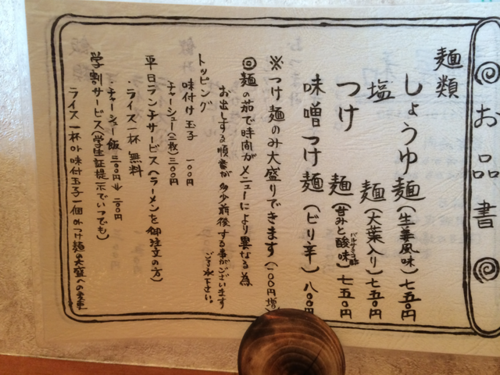 お品書
麺類
しょうゆ麺(生姜風味)七五〇円
塩麺(大葉入り)七五〇円
つけ麺(甘みと酸味)七五〇円
味噌つけ麺(ピリ辛)八〇〇円
※つけ麺のみ大盛りできます(一〇〇円増)
◎麺の茹で時間がメニューにより異なる為
お出しする順番が多少前後する事がございます
ご了承下さい。
トッピング
味付け玉子 一〇〇円
チャーシュー(三枚)三〇〇円
平日ランチサービス(ラーメンを御注文の方)
・ライス一杯 無料
・チャーシュー飯
学割サービス(学生証提示でいつでも)
ライス一杯か味付玉子一個かつけ麺の大盛への変更